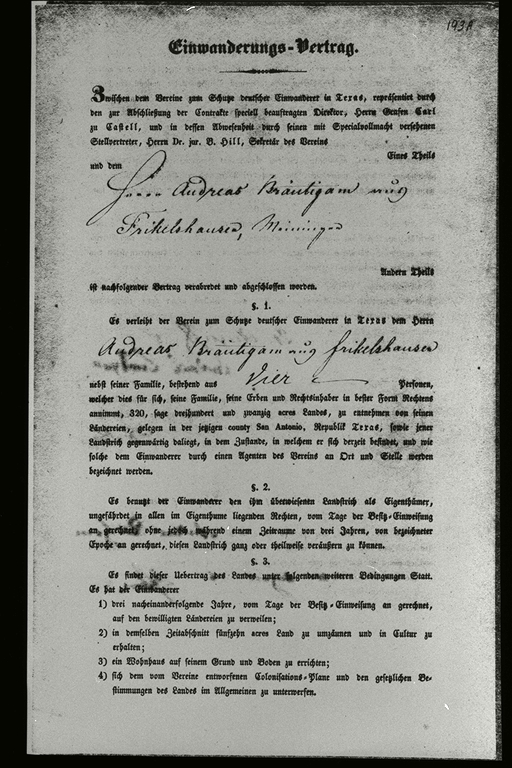 193A
Einwanderungs-Vertrag.
Zwischen dem Vereine zum Schutze deutscher Einwanderer in Texas, repräsentirt durch
den zur Abschließung der Contrakte speciell beauftragten Direktor, Herrn Grafen Carl
zu Castell, und in dessen Abwesenheit durch seinen mit Specialvollmacht versehenen
Stellvertreter, Herrn Dr. jur. B. Hill, Sekretär des Vereins
Eines Theils
und dem
Herrn Andreas Bräutigam aus
Frikelshausen, Meiningen
Andern Theils
ist nachfolgender Vertrag verabredet und abgeschlossen worden.
§. 1.
Es verleiht der Verein zum Schutze deutscher Einwanderer in Texas dem Herrn
Andreas Bräutigam aus Frikelshausen
Vier
nebst seiner Familie, bestehend aus Personen,
welcher dies für sich, seine Familie, seine Erben und Rechtsinhaber in bester Form Rechtens
annimmt, 320, sage dreihundert und zwanzig acres Landes, zu entnehmen von seinen
Ländereien, gelegen in der jetzigen county San Antonio, Republik Texas, sowie jener
Landstrich gegenwärtig daliegt, in dem Zustande, in welchem er sich derzeit befindet, und wie
solche dem Einwanderer durch einen Agenten des Vereins an Ort und Stelle werden
bezeichnet werden.
§. 2.
Es benutzt der Einwanderer den ihm überwiesenen Landstrich als Eigenthümer,
ungefährdet in allen im Eigenthume liegenden Rechten, vom Tage der Besitz-Einweisung
an gerechnet, ohne jedoch während einem Zeitraume von drei Jahren, von bezeichneter
Epoche an gerechnet, diesen Landstrich ganz oder theilweise veräußern zu können.
§. 3.
Es findet dieser Uebertrag des Landes unter folgenden weiteren Bedingungen Statt.
Es hat der Einwanderer
1) drei nacheinanderfolgende Jahre, vom Tage der Besitz-Einweisung an gerechnet,
auf den bewilligten Ländereien zu verweilen;
2) in demselben Zeitabschnitt fünfzehn acres Land zu umzäunen und in Cultur zu
erhalten;
3) ein Wohnhaus auf seinem Grund und Boden zu errichten;
4) sich dem vom Vereine entworfenen Colonisations-Plane und den gesetzlichen Be-
stimmungen des Landes im Allgemeinen zu unterwerfen.